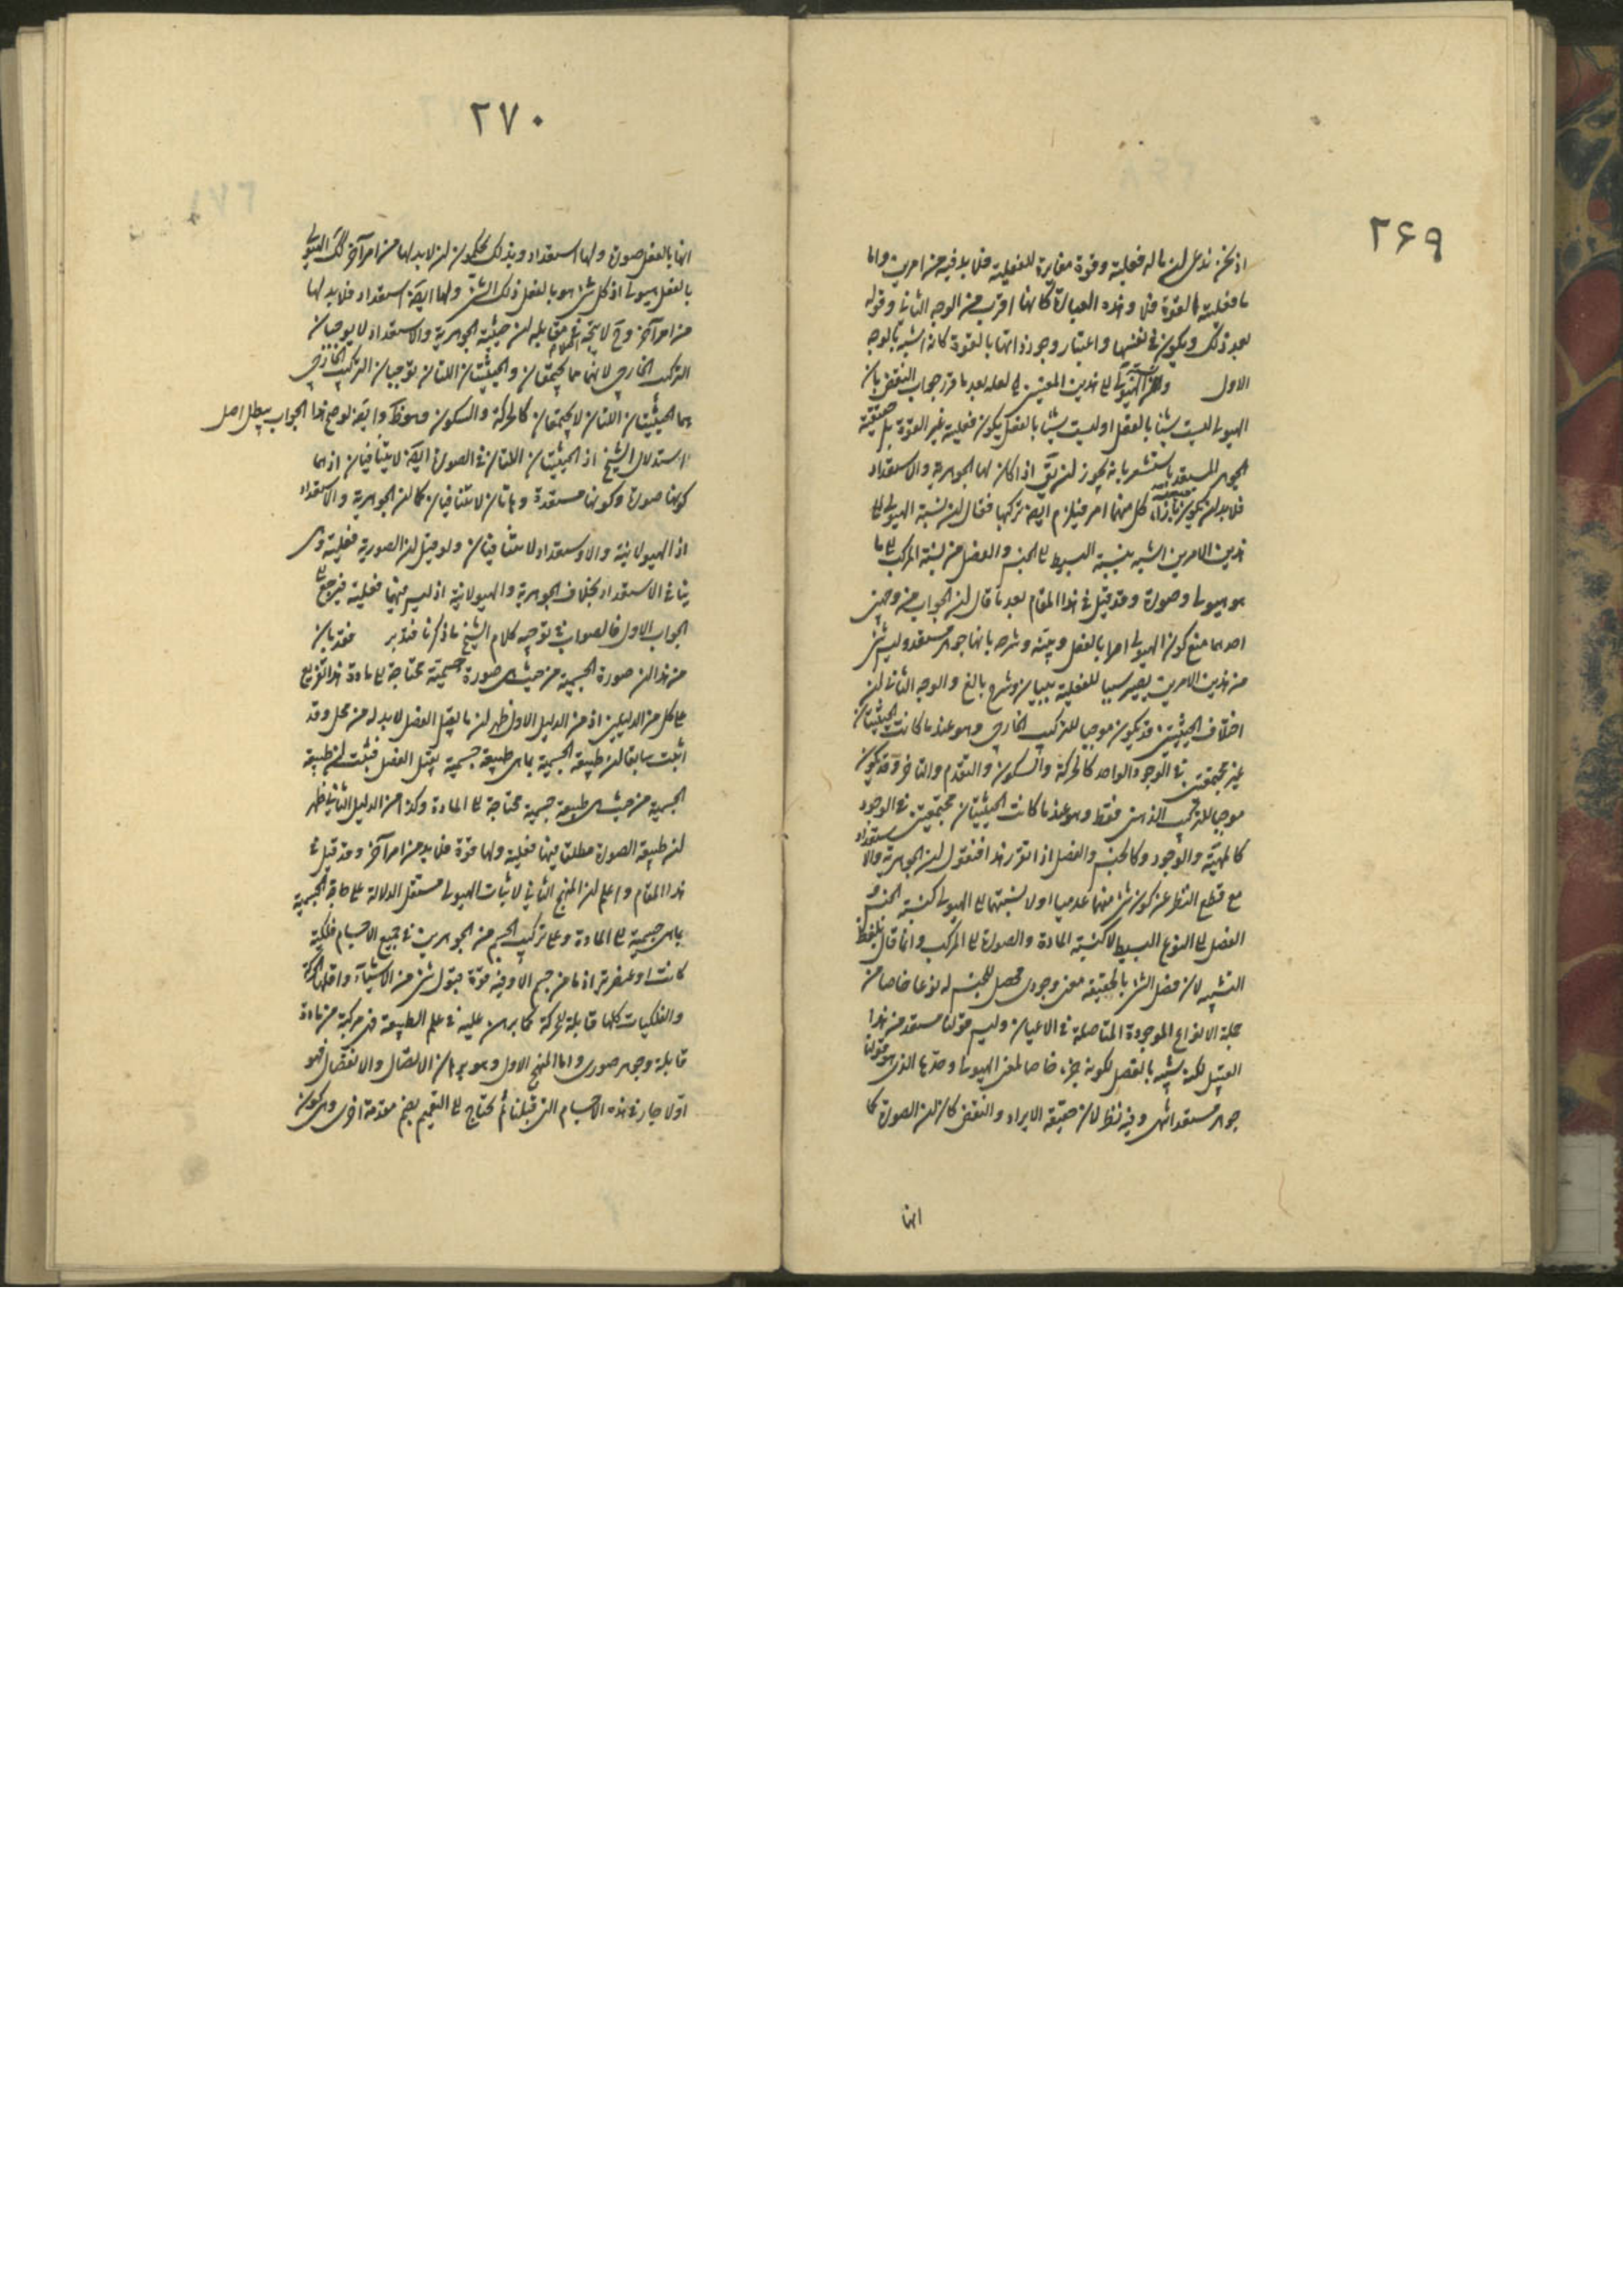 ۲۶۹
اذ نحن ندعی ان ما له فعلیة و قوة مغایرة للفعلیة فلا بد فیه من امرین و اما
ما فعلیته القوة فلا و هذه العبارة کانها اقرب من الوجه الثانی و قوله
بعد ذلک و یکون فی نفسها و اعتبار وجود ذاتها بالقوة کانه اشبه بالوجه
الاول الهیولی الی هذین المعنیین لعله بعد ما قرر جواب النقض بان
الهیولی لیست شیئا بالفعل او لیست شیئا بالفعل یکون فعلیته غیر القوة بل حقیقته
الجوهر المستعد استشعر بانه یجوز ان یق اذا کان لها الجوهریة و الاستعداد
فلا بد ان یکون بازاء کل منهما امر فیلزم ایضا ترکبها فقال ان نسبة الهیولی الی
هذین الامرین اشبه بنسبة البسیط الی الجنس و الفصل من نسبة المرکب الی ما
هو هیولی و صورة و قد قیل فی هذا المقام بعد ما قال ان الجواب من وجهین
احدهما منع کون الهیولی امرا بالفعل و بینه و شرحه بانها جوهر مستعد و لیس شئ
من هذین الامرین یصیر سببا للفعلیة ببیان و شرح بالغ و الوجه الثانی ان
اختلاف الحیثیتین قد یکون موجبا للترکیب الخارجی و هو عندما کانت الحیثیتان
غیر مجتمعتین فی الوجود الواحد کالحرکة و السکون و التقدم و التاخر و قد یکون
موجبا للترکیب الذهنی فقط و هو عندما کانت الحیثیتان مجتمعتین فی الوجود
کالمهیة و الوجود و کالجنس و الفصل اذا تقرر هذا فنقول ان الجوهریة و الاستعداد
مع قطع النظر عن کون شئ منهما عدمیا او لا نسبتهما الی الهیولی کنسبة الجنس و
الفصل الی النوع البسیط لا کنسبة المادة و الصورة الی المرکب و انما قال بلفظ
التشبیه لان فصل الشئ بالحقیقه معنی وجودی محصل للجنس له نوعا خاصا من
جملة الانواع الموجودة المتاصلة فی الاعیان و لیس قولنا مستعد من هذا
القبیل لکنه یشبه بالفصل لکونه جزء خاصا لمعنی الهیولی و حدها الذی هو قولنا
جوهر مستعد انتهی و فیه نظر لان حقیقة الایراد و النقض کان ان الصورة کما
انها
۲۷۰
انها بالفعل صورة و لها استعداد و بذلک تحکمون ان لا بد لها من امر آخر کک الهیولی
بالفعل هیولی اذ کل شئ هو بالفعل ذلک الشئ و لها ایضا استعداد فلا بد لها
من امر آخر و ح لا یتجه فی مقابله ان حیثیة الجوهریة و الاستعداد لا یوجبان
الترکیب الخارجی لانهما مما یجتمعان و الحیثیتان اللتان توجبان الترکیب الخارجی
هما الحیثیتان اللتان لا یجتمعان کالحرکة و السکون و هو ظ و ایضا لو صح هذا الجواب یبطل اصل
استدلال الشیخ اذ الحیثیتان اللتان فی الصورة ایضا لا یتنافیان اذ هما
کونها صورة و کونها مستعدة و هاتان لا یتنافیان کما ان الجوهریة و الاستعداد
اذ الهیولانیة و الاستعداد لا یتنافیان و لو قیل ان الصوریة فعلیة و هی
ینافی الاستعداد بخلاف الجوهریة و الهیولانیة اذ لیس فیهما فعلیة فیرجع الی
الجواب الاول فالصواب فی توجیه کلام الشیخ ما ذکرنا فتدبر فقد بان
من هذا ان صورة الجسمیة من حیث هی صورة جسمیة محتاجة الی مادة هذا تفریع
علی کل من الدلیلین اذ من الدلیل الاول ظهر ان ما یقبل الفصل لا بد له من محل و قد
اثبت سابقا ان طبیعة الجسمیة بما هی طبیعة جسمیة یقبل الفصل فثبت ان طبیعة
الجسمیة من حیث هی طبیعة جسمیة محتاجة الی المادة و کذا من الدلیل الثانی ظهر
ان طبیعة الصورة مطلقا فیها فعلیة و لها قوة فلا بد من امر آخر و قد قیل فی
هذا المقام و اعلم ان المنهج الثانی لاثبات الهیولی مستقل الدلالة علی حاجة الجسمیة
بما هی جسمیة الی المادة و علی ترکیب الجسم من الجوهرین فی جمیع الاجسام فلکیة
کانت او عنصریة اذ ما من جسم الا و فیه قوة قبول شئ من الاشیاء و اقلها الحرکة
و الفلکیات کلها قابلة للحرکة کما برهن علیه فی علم الطبیعة فهی مرکبة من مادة
قابلة و جوهر صوری و اما المنهج الاول و هو برهان الاتصال و الانفصال فهو
اولا جار فی هذه الاجسام التی قبلنا ثم یحتاج الی التعمیم بضم مقدمة اخری و هی کون